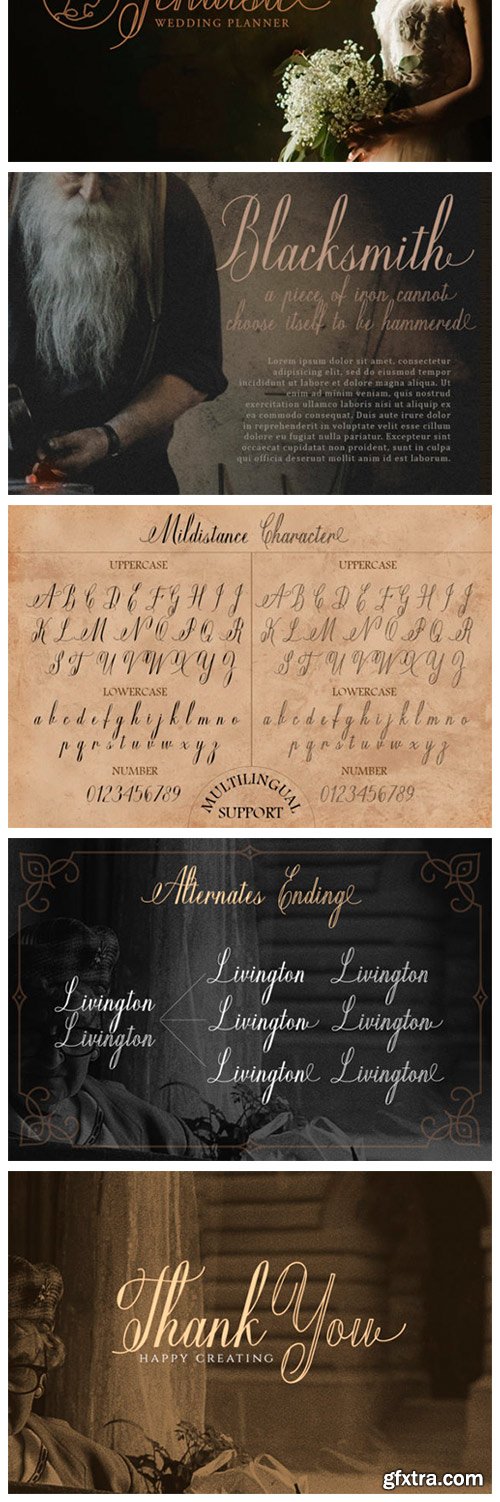 WEDDING PLANNER
Blacksmith
a piece of iron cannot
choose itself to be hammered
Lorem ipsum dolor sit amet, consectetur
adipiscing elit, sed do eiusmod tempor
incididunt ut labore et dolore magna aliqua. Ut
enim ad minim veniam, quis nostrud
exercitation ullamco laboris nisi ut aliquip ex
ea commodo consequat. Duis aute irure dolor
in reprehenderit in voluptate velit esse cillum
dolore eu fugiat nulla pariatur. Excepteur sint
occaecat cupidatat non proident, sunt in culpa
qui officia deserunt mollit anim id est laborum.
Mildistance Character
UPPERCASE
A B C D E F G H I J
K L M N O P Q R
S T U V W X Y Z
LOWERCASE
a b c d e f g h i j k l m n o
p q r s t u v w x y z
NUMBER
0123456789
UPPERCASE
A B C D E F G H I J
K L M N O P Q R
S T U V W X Y Z
LOWERCASE
a b c d e f g h i j k l m n o
p q r s t u v w x y z
NUMBER
0123456789
MULTILINGUAL
SUPPORT
Alternates Ending
Livington
Livington
Livington Livington
Livington Livington
Livington Livington
Thank You
HAPPY CREATING
gfxtra.com